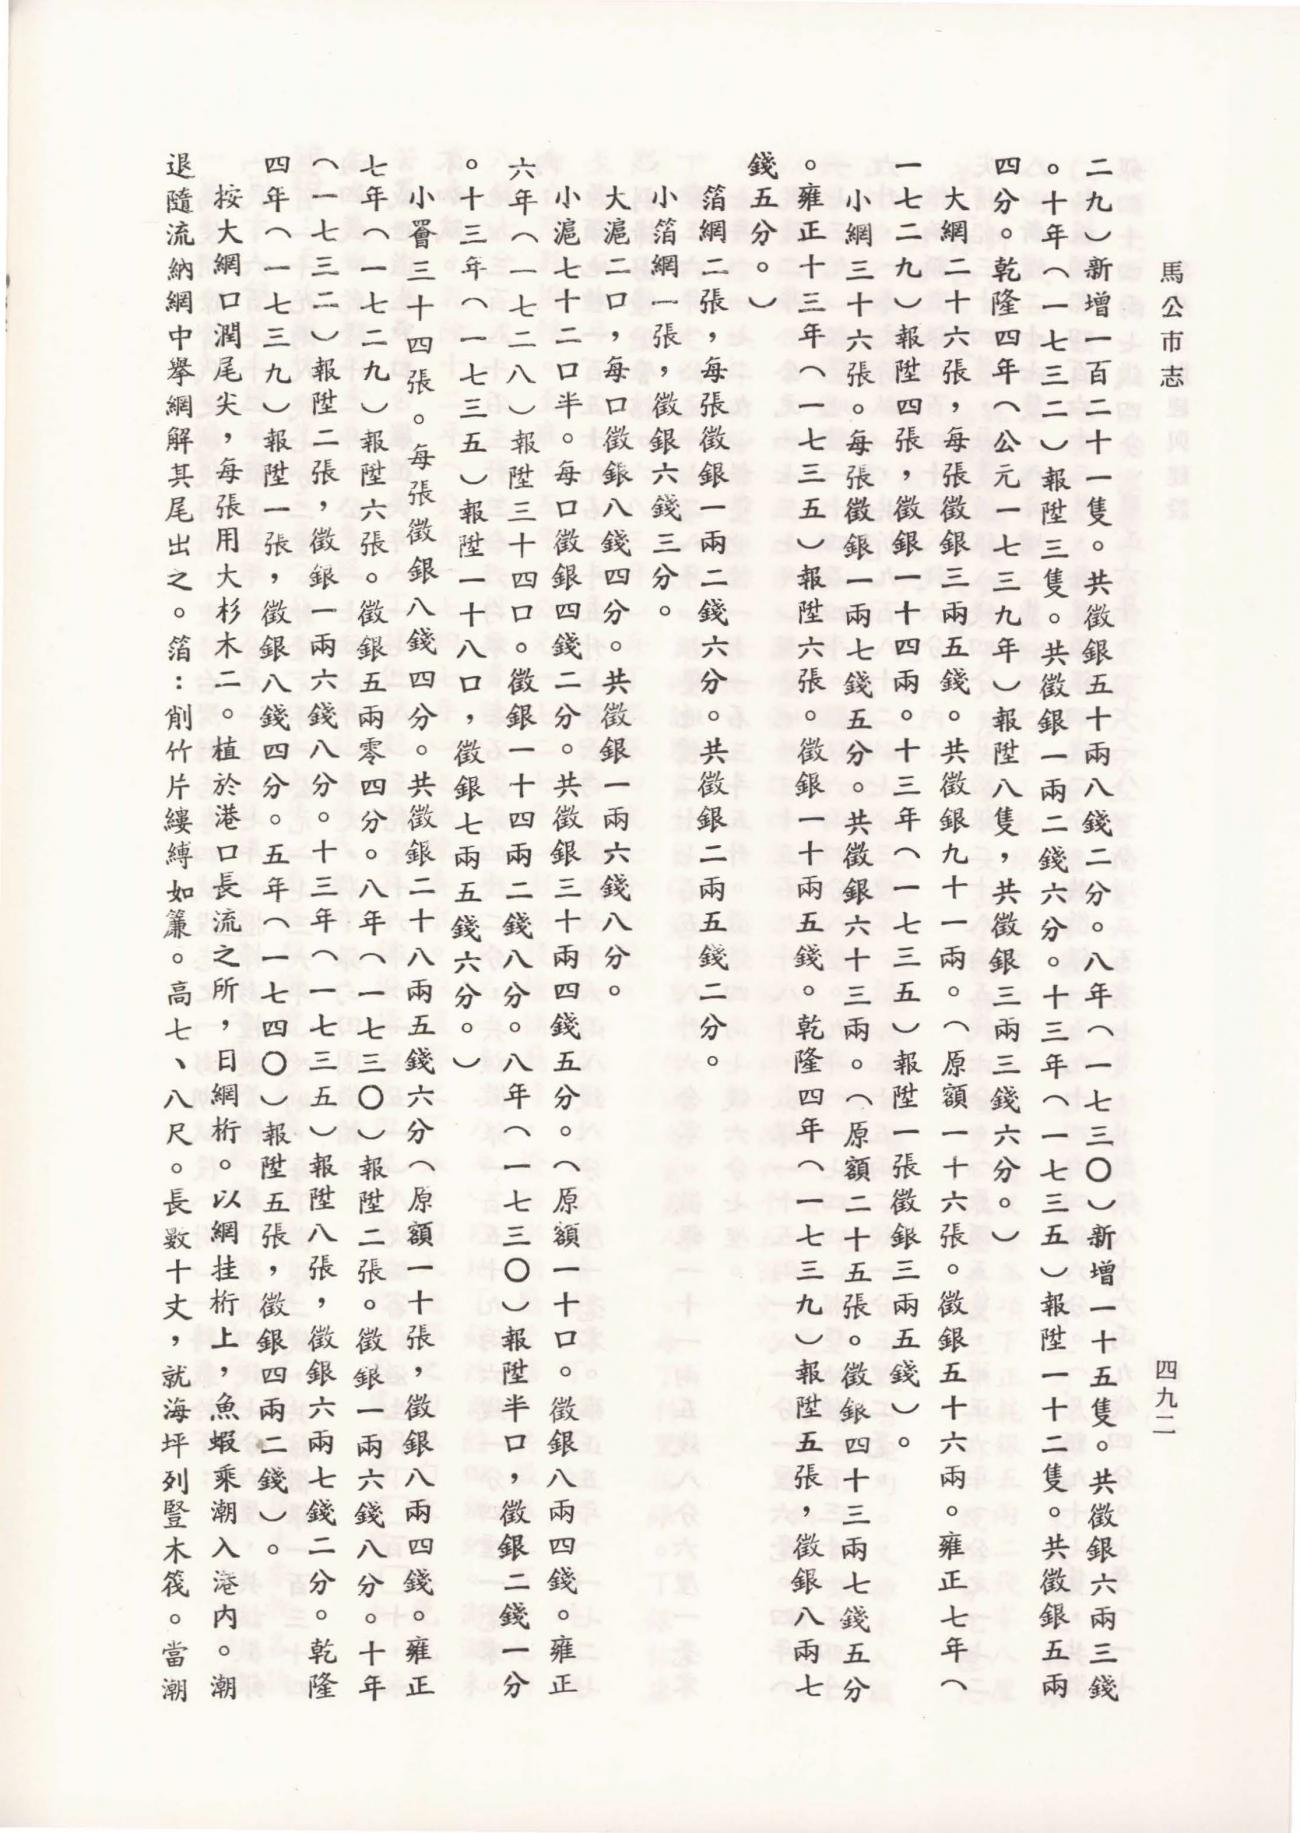 馬公市志
四九二
二九）新增一百二十一隻。共徵銀五十兩八錢二分。八年（一七三〇）新增一十五隻。共徵銀六兩三錢
。十年（一七三二）報陞三隻。共徵銀一兩二錢六分。十三年（一七三五）報陞一十二隻。共徵銀五兩
四分。乾隆四年（公元一七三九年）報陞八隻，共徵銀三兩三錢六分。）
大網二十六張，每張徵銀三兩五錢。共徵銀九十一兩。（原額一十六張。徵銀五十六兩。雍正七年（
一七二九）報陞四張，徵銀一十四兩。十三年（一七三五）報陞一張徵銀三兩五錢）。
小網三十六張。每張徵銀一兩七錢五分。共徵銀六十三兩。（原額二十五張。徵銀四十三兩七錢五分
。雍正十三年（一七三五）報陞六張。徵銀一十兩五錢。乾隆四年（一七三九）報陞五張，徵銀八兩七
錢五分。）
箔網二張，每張徵銀一兩二錢六分。共徵銀二兩五錢二分。
小箔網一張，徵銀六錢三分。
大滬二口，每口徵銀八錢四分。共徵銀一兩六錢八分。
小滬七十二口半。每口徵銀四錢二分。共徵銀三十兩四錢五分。（原額一十口。徵銀八兩四錢。雍正
六年（一七二八）報陞三十四口。徵銀一十四兩二錢八分。八年（一七三〇）報陞半口，徵銀二錢一分
。十三年（一七三五）報陞一十八口，徵銀七兩五錢六分。）
小罾三十四張。每張徵銀八錢四分。共徵銀二十八兩五錢六分（原額一十張，徵銀八兩四錢。雍正
七年（一七二九）報陞六張。徵銀五兩零四分。八年（一七三〇）報陞二張。徵銀一兩六錢八分。十年
（一七三二）報陞二張，徵銀一兩六錢八分。十三年（一七三五）報陞八張，徵銀六兩七錢二分。乾隆
四年（一七三九）報陞一張，徵銀八錢四分。五年（一七四〇）報陞五張，徵銀四兩二錢）。
按大網口濶尾尖，每張用大杉木二。植於港口長流之所，日網桁。以網挂桁上，魚蝦乘潮入港內。潮
退隨流納網中擧網解其尾出之。箔：削竹片縷縛如簾。高七、八尺。長數十丈，就海坪列豎木筏。當潮